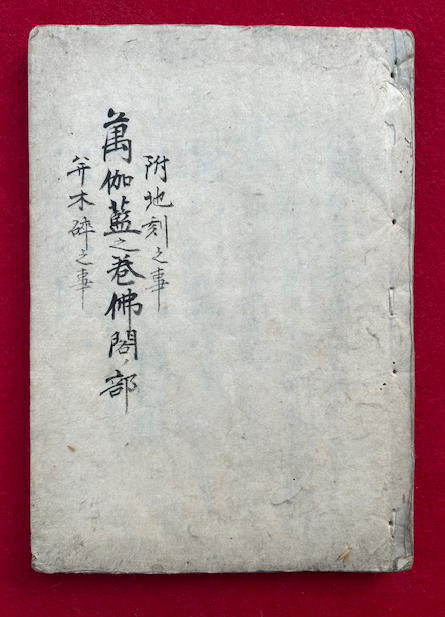 附地刻之事
萬伽藍之巻佛閣ノ部
并木砕之事